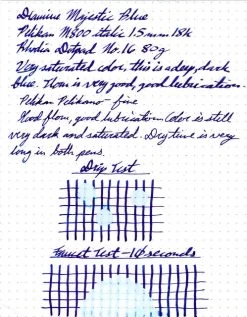 Diamine Majestic Blue
Pelikan M800 Italic 1.5mm 18k
Rhodia Dotpad No. 16 80g
Very saturated color, this is a deep, dark
blue. Flow is very good, good lubrication.
Pelikan Pelikano - fine
Good flow, good lubrication. Color is still
very dark and saturated. Dry time is very
long in both pens.
Drip Test
Faucet Test - 10 seconds